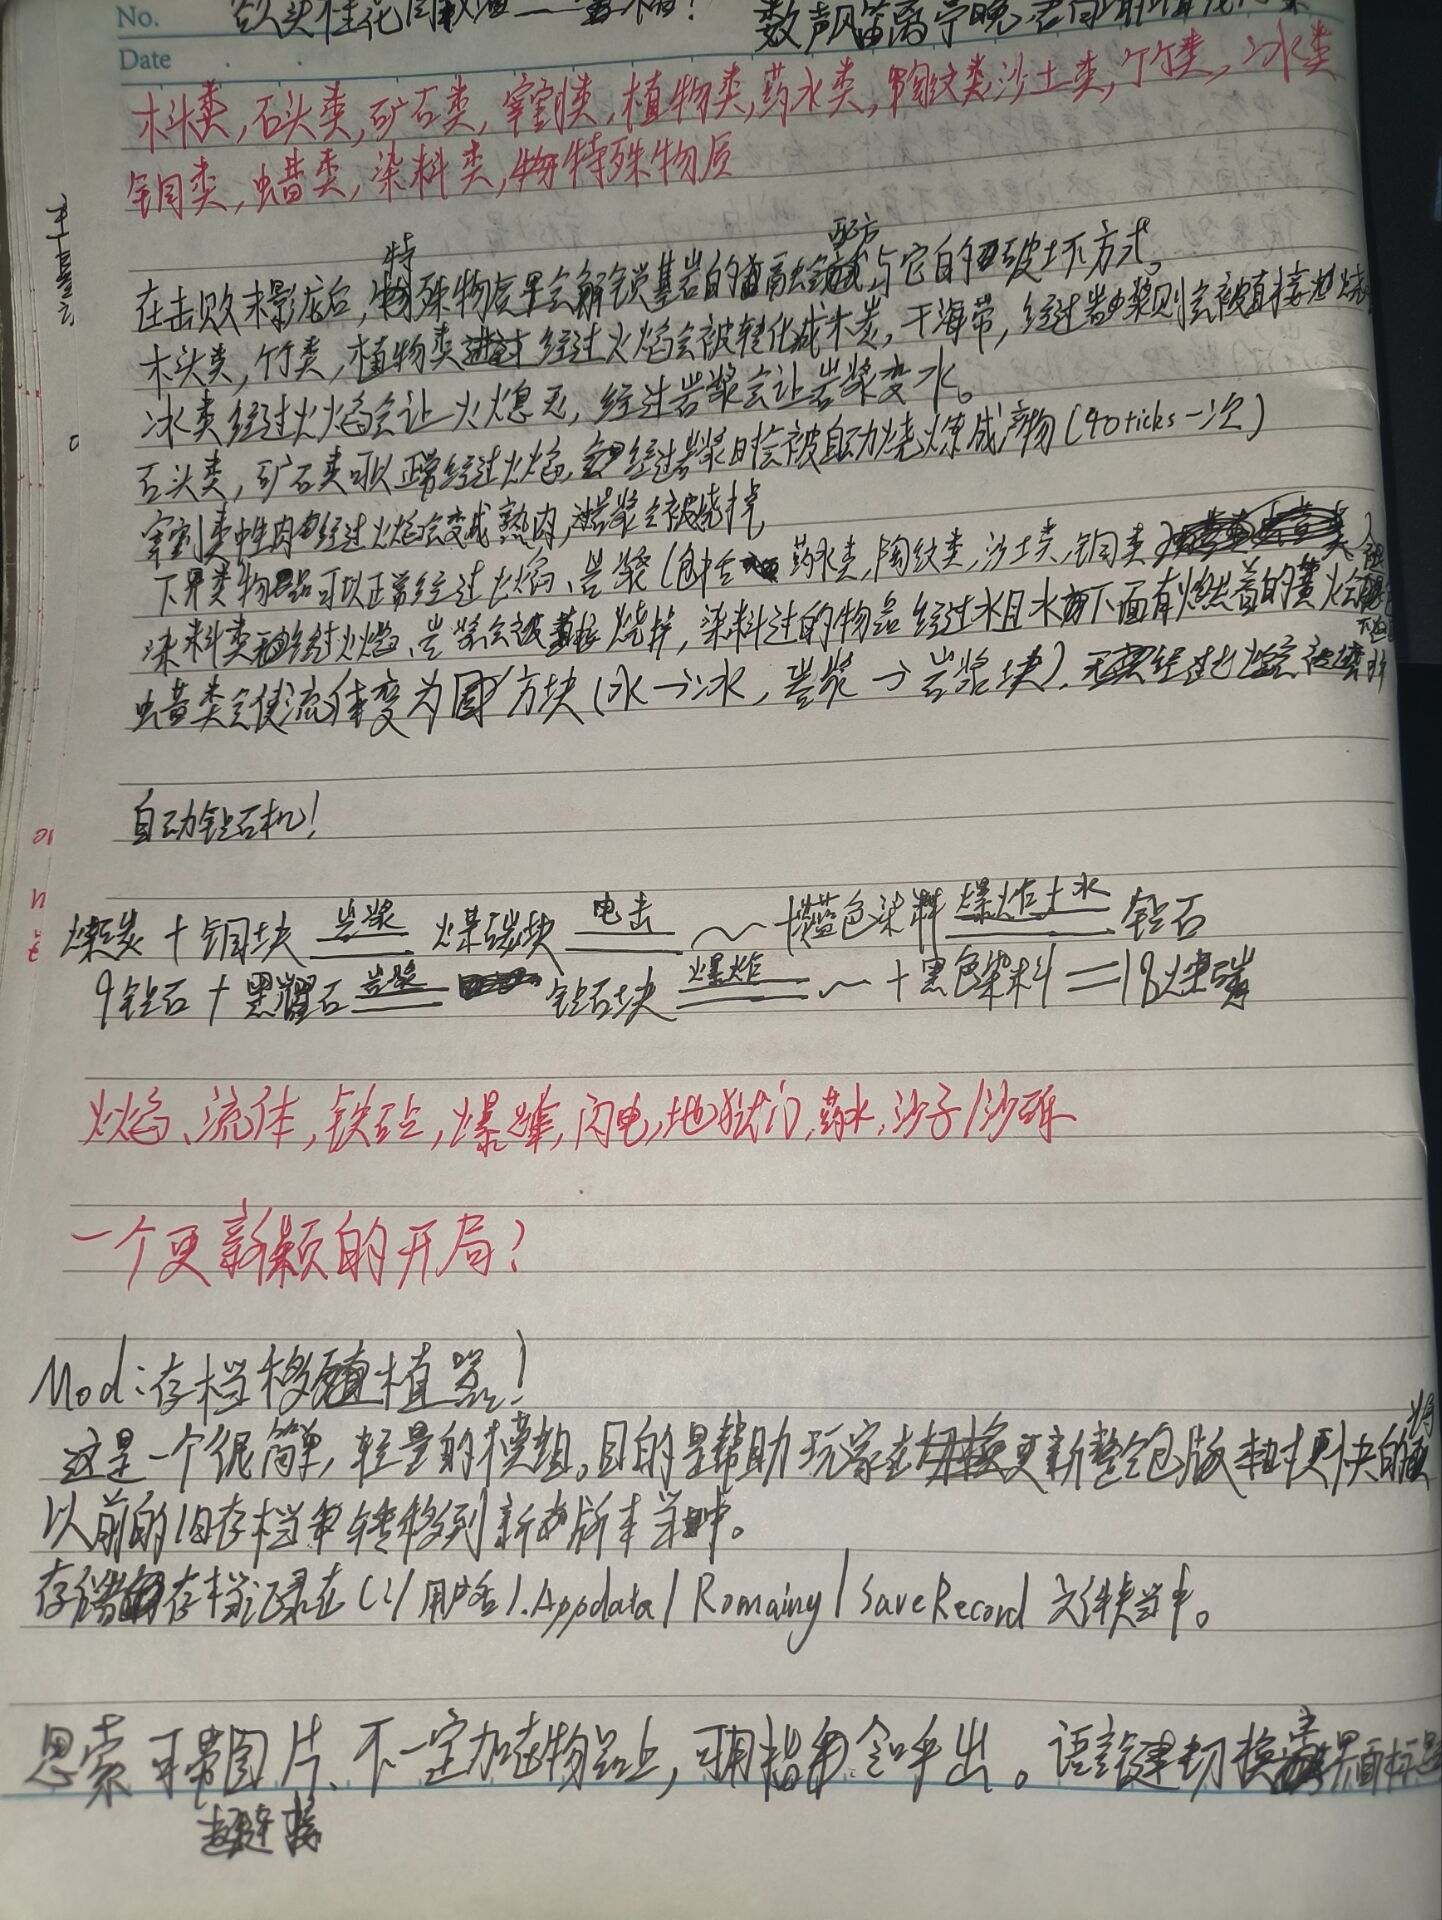 No.
欲买桂花同载酒
数声风笛离亭晚 君向
Date
木头类,石头类,矿石类,宰割类,植物类,药水类,陶纹类,沙土类,竹类,冰类
铜类,蜡类,染料类,特殊物质
在击败末影龙后,特殊物质里会解锁基岩的配方与它的破坏方式。
木头类,竹类,植物类经过火焰会被转化成木炭,干海带,经过岩浆则会被直接烧
冰类经过火焰会让火熄灭,经过岩浆会让岩浆变水。
石头类,矿石类可以正常经过火焰,经过岩浆时会被自动烧炼成产物(40ticks一次)
宰割类中生肉经过火焰会变成熟肉,过岩浆会被烧掉
下界类物品可以正常经过火焰、岩浆(包括 药水类,陶纹类,沙土类,铜类
染料类经过火焰、岩浆会被烧掉,染料过的物品经过水且水下面有燃着的篝火会
蜡类会使流体变为固方块(水→冰,岩浆→岩浆块),
自动钻石机!
煤炭+铜块 岩浆 煤碳块 电击 ~+蓝色染料 爆炸+水 钻石
9钻石+黑耀石 岩浆 钻石块 爆炸 ~+黑色染料=18煤碳
火焰、流体,铁砧,爆炸,闪电,地狱门,药水,沙子/沙砾
一个更新颖的开局?
Mod:存档移植器!
这是一个很简单,轻量的模组。目的是帮助玩家在更新整合包版本时更快的将
以前的旧存档转移到新版本当中。
存档记录在C:/用户名/.Appdata/Romainy/SaveRecord文件夹当中。
思索可带图片、不一定加在物品上,可用指令呼出。语言键切换 界面标题
超连接